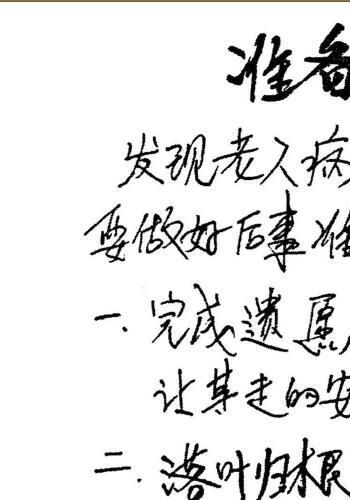 准备
发现老人病
要做好后事准
一、完成遗愿
让其走的安
二.落叶归根